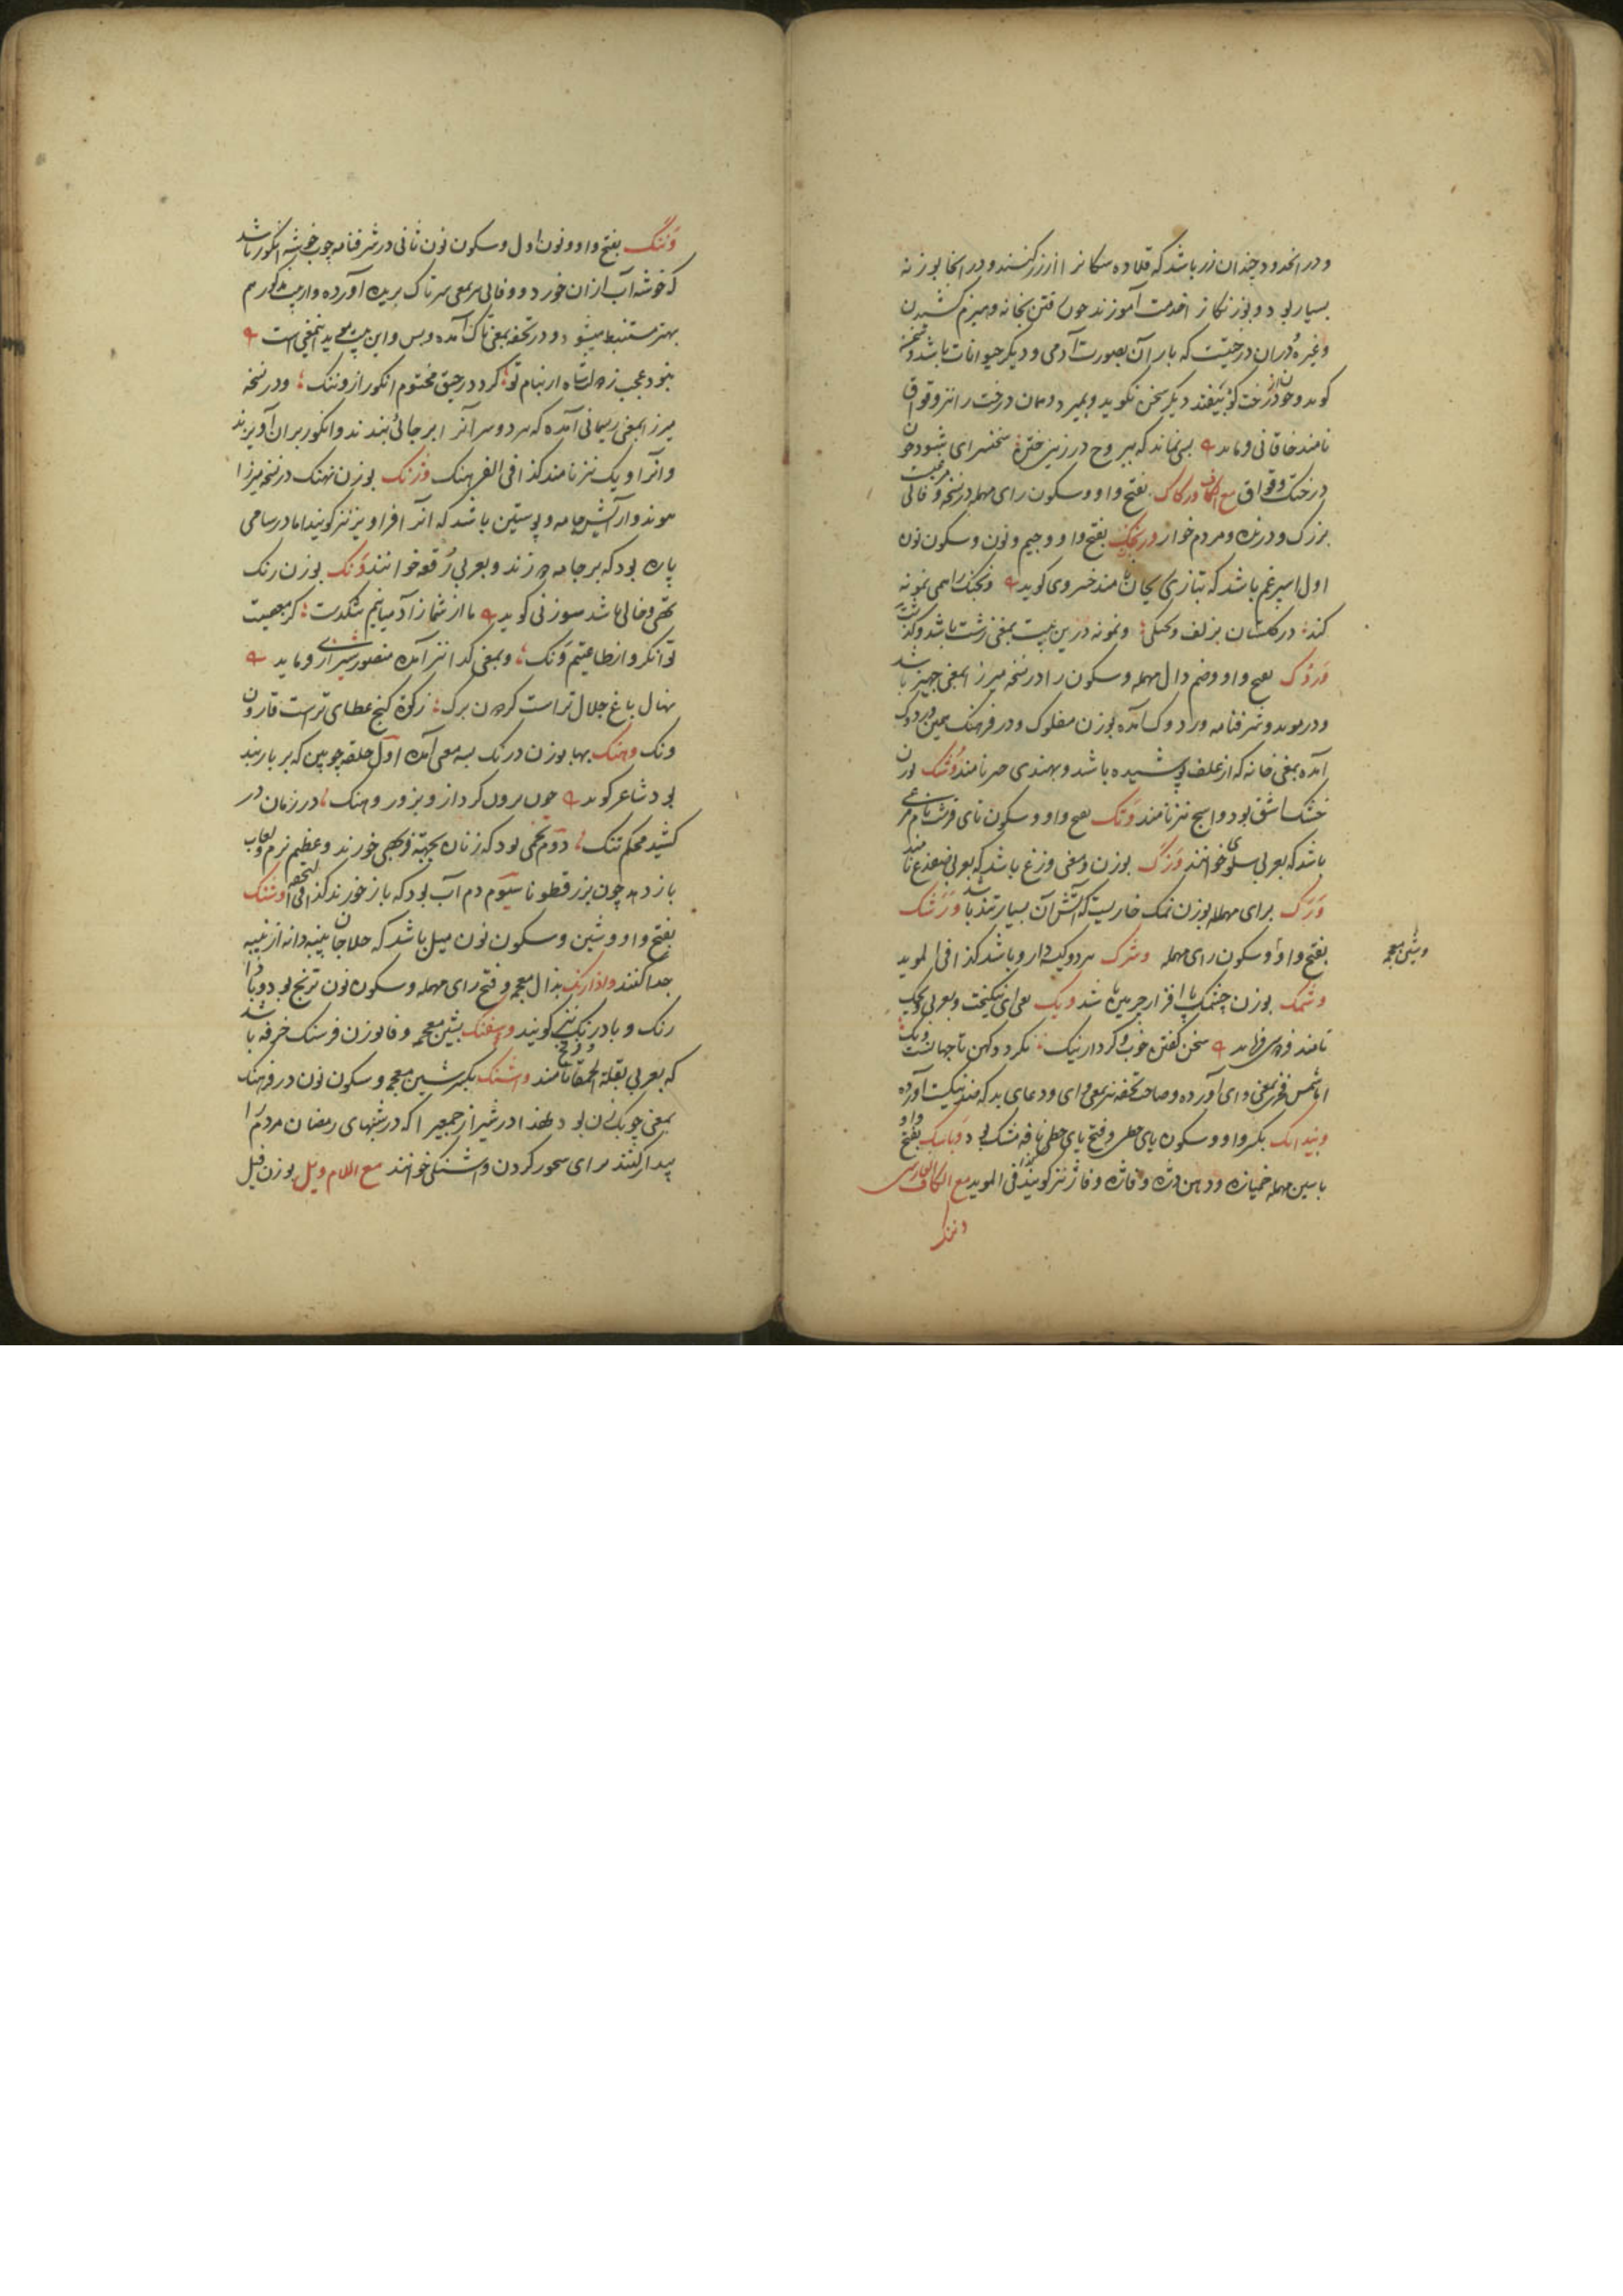 و در انحدود چندان زر باشد که قلاده سکانرا از زر کنند و در انجا بوزنه
بسیار بود و بوزنکانرا خدمت آموزند چون رفتن بخانه و هیزم کشیدن
و غیره و درسان درختیست که بار آن بصورت آدمی و دیکر حیوانات باشد و سخن
کوید و چون از درخت بیفتد دیکر سخن نکوید و بمیرد و همان درخت را نیز وقواق
نامند خاقانی فرماید بسی نماند که بیروح در زمین ختن سخنسرای شود چون
درخت وقواق مع الکاف ورکاک بفتح واو و سکون رای مهمله در نسخه وفائی مرغیست
بزرک و درنده و مردم خوار ونجنک بفتح واو و جیم و نون و سکون نون
اول اسپرغم باشد که بتازی ریحان نامند خسروی کوید ونجنک را همی نمونه
کند در کلستان بزلف ونجنکی و نمونه درین بیت بمعنی زشت باشد
وردک بفتح واو و ضم دال مهمله و سکون را در نسخه میرزا بمعنی جهیز باشد
و در موید و شرفنامه وردوک آمده بوزن مفلوک و در فرهنک همین وردوک
آمده بمعنی خانه که از علف پوشیده باشد و بهندی چپر نامند وشک بوزن
خشک اشق بود و اسج نیز نامند وتک بفتح واو و سکون تای قرشت نام مرغی
باشد که بعربی سلوی خوانند وزک بوزن و معنی وزغ باشد که بعربی ضفدع نامند
ورک برای مهمله بوزن نمک خاریست که آتش آن بسیار تند باشد ورشک
بفتح واو و سکون رای مهمله وشرک هر دو کیسه دارو باشد کذا فی الموید
و شین معجمه
وشمک بوزن چشمک پا افزار چرمین باشد ویک بمعنی ای نیکبخت و بعربی ویحک
نامند فردوسی فرماید سخن کفتن خوب و کردار نیک نکردد کهن تا جهانست ویک
اما شمس فخری بمعنی وای آورده و صاحب تحفه نیز بمعنی وای و دعای بد که ضد نیکیست آورده
ویدانک بکسر واو و سکون یای حطی و فتح یای حطی نافه مشک بود وباسک بفتح واو
با سین مهمله خمیازه و دهن دره و فاژه و فاژ نیز کویند کذا فی الموید مع الکاف الفارسی
وننک
وننک بفتح واو و نون اول و سکون نون ثانی در شرفنامه چوب خوشه انکور باشد
که خوشه آب از ان خورد و وفائی بمعنی سر تاک بریده آورده و از بیت مذکور هم
بهتر مستنبط میشود و در تحفه بمعنی تاک آمده و بس و این بیت موید اینمعنی است
نبود عجب ز عدل شاه ار بنام تو کردد رحیق مختوم انکور از وننک و در نسخه
میرزا بمعنی ریسمانی آمده که هر دو سر آنرا بر جائی بندند و انکور بر ان آویزند
و آنرا آویک نیز نامند کذا فی الفرهنک وژنک بوزن نهنک در نسخه میرزا
پیوند و آرایش جامه و پوستین باشد که انرا فراویز نیز کویند اما در سامی
پاره بود که بر جامه دوزند و بعربی رقعه خوانند ونک بوزن رنک
تهی و خالی باشد سوزنی کوید ما از شمار آدمیانیم شکدست کز معصیت
توانکر و از طاعتیم ونک و بمعنی کدا نیز آمده منصور شیرازی فرماید
نهال باغ جلال تراست کردون برک زکوة کنج عطای تراست قارون
ونک وهنک بها بوزن درنک بسه معنی آمده اول حلقه چوبین که بر باربند
بود شاعر کوید چون برون کرد از و بزور وهنک در زمان در
کشید محکم تنک دوم تخمی بود که زنان بجهة فربهی خورند و عظیم نرم و لعاب
باز دهد چون بزر قطونا سیوم دم آب بود که باز خورند کذا فی التحفه وشنک
بفتح واو و شین و سکون نون میل باشد که حلاجان پنبه دانه از پنبه
جدا کنند وادارنک بذال معجمه و فتح رای مهمله و سکون نون ترنج بود و باد
رنک و بادرنک نیز کویند وشفنک بشین معجمه و فا بوزن فرسنک خرفه باشد
که بعربی بقلة الحمقا نامند وشنک بکسر شین معجمه و سکون نون در فرهنک
بمعنی چوبک زن بود و لهذا در شیراز جمعیرا که در شبهای رمضان مردم را
بیدار کنند برای سحور کردن وشنکی خوانند مع اللام ویل بوزن فیل